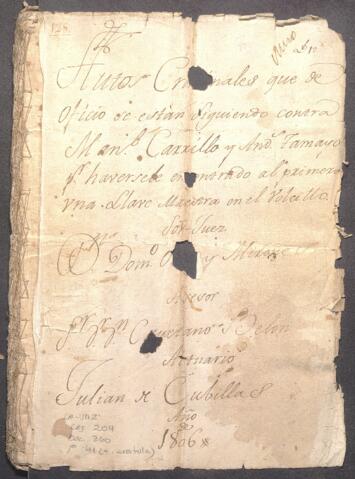 128
Autos Criminales que de
Oficio se están siguiendo contra
Man.l Carrillo y And.s Tamayo
p.r haversele encontrado al primero
vna Llave Maestra en el Volcillo
Sor. Juez
D.n Dom.o y
Asesor
Cayetano Belon
Actuario
Julian de Cubillas
Año
de
1806
Leg. 204
Doc. 260